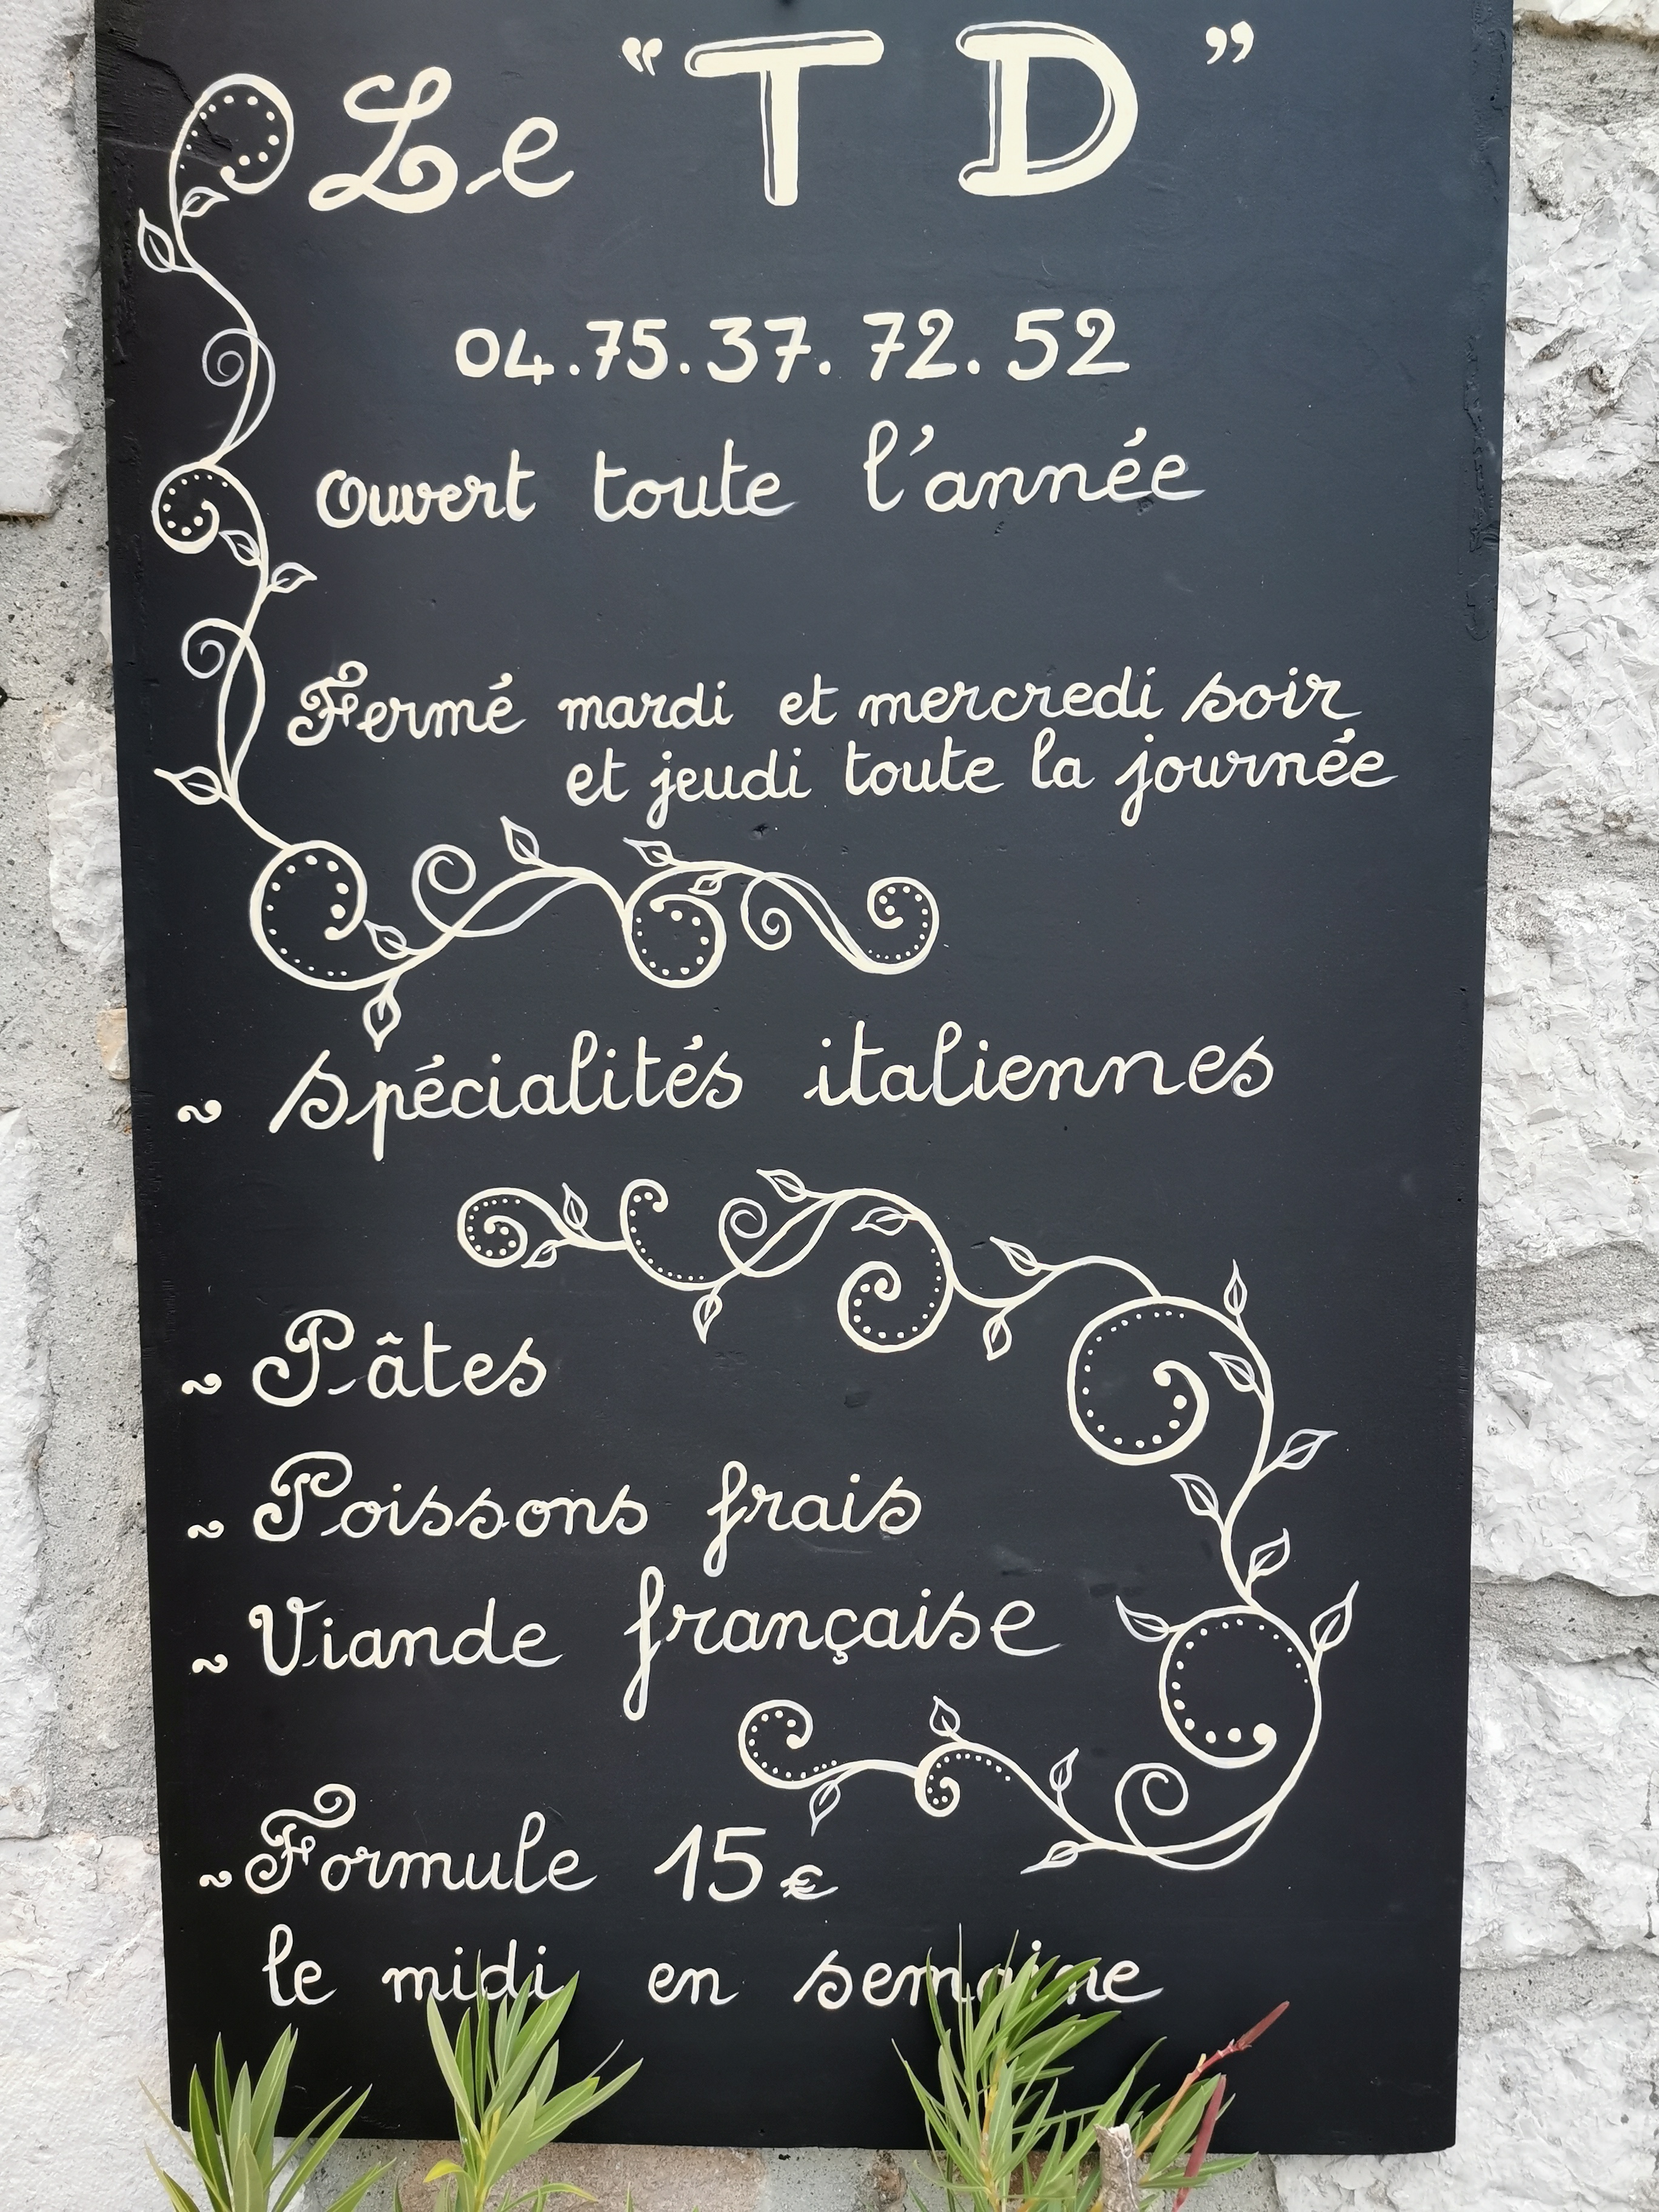 Le “TD”
04.75.37.72.52
Ouvert toute l'année
Fermé mardi et mercredi soir
et jeudi toute la journée
~ Spécialités italiennes
~ Pâtes
~ Poissons frais
~ Viande française
~ Formule 15€
le midi en semaine